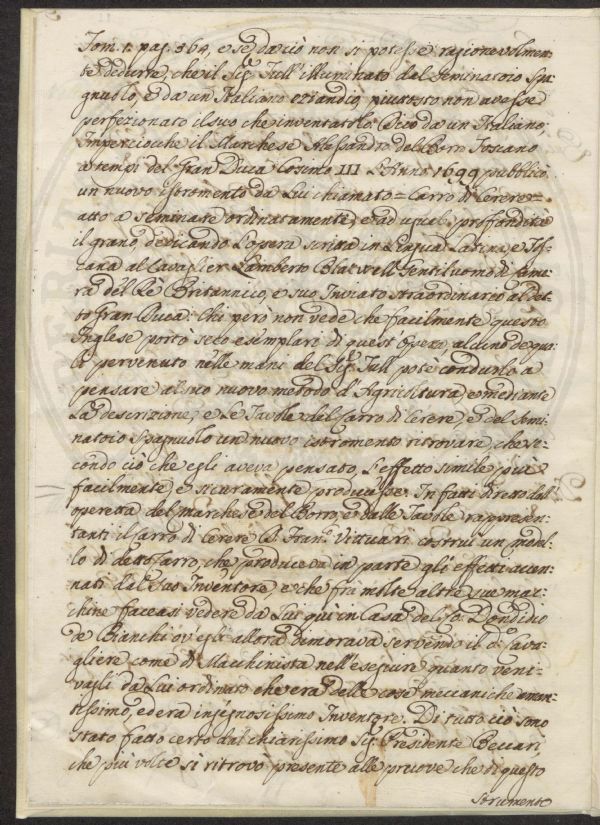 Tom. 1. pag. 364, e se da ciò non si potesse ragionevolmen-
te dedurre, che il Sig. Tull illuminato dal Seminatoio Spa-
gnuolo, e da un Italiano eziandio, piuttosto non avesse
perfezionato il suo che inventatolo. Dico da un Italiano,
Imperciocche il Marchese Alessandro del Borro Toscano
a tempi del Gran Duca Cosimo III L'Anno 1699 pubblicò
un nuovo istromento da Lui chiamato = Carro di Cerere =
atto a seminare ordinatamente, e ad ugual profondità
il grano, dedicando L'opera scritta in Lingua Latina, e Tos-
cana al Cavaglier Lamberto Blatwell Gentiluomo di Came-
ra del Rè Britannico, e suo Inviato straordinario al det-
to Gran Duca: Chi però non vede che facilmente questo
Inglese portò seco esemplari di quest'Opera, alcino de qua-
li pervenuto nelle mani del Sig. Tull potè condurlo a
pensare al suo nuovo metodo d'Agricltura, e mediante
La descrizione, e Le Tavole del Carro di Cerere, e del Semi-
natoio Spagnuolo un nuovo istromento ritrovare, che se-
condo ciò che egli aveva pensato, L'effetto simile più
facilmente, e sicuramente producesse. In fatti diretto dall'
operetta del Marchese del Borro, e dalle Tavole rappresen-
tanti il Carro di Cerere D. Fran.º Vittuari costruì un model-
lo di detto Carro, che produceva in parte gli effetti accen-
nati dal Suo Inventore, e che frà molte altre sue mac-
chine faceasi vedere da Lui quì in Casa del Co: Dondidio
de Bianchi ov'egli allora dimorava servendo il dº Cava-
gliere come di Macchinista nell'eseguire quanto veni-
vagli da Lui ordinato che era delle cose meccaniche aman-
tissimo, ed era ingegnosissimo Inventore. Di tutto ciò sono
stato fatto certo dal chiarissimo Sig. Presidente Beccari,
che più volte si ritrovò presente alle pruove che di questo
strumento